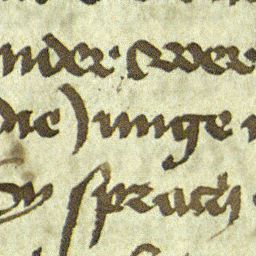 nder · Swer
die Junge
sprach